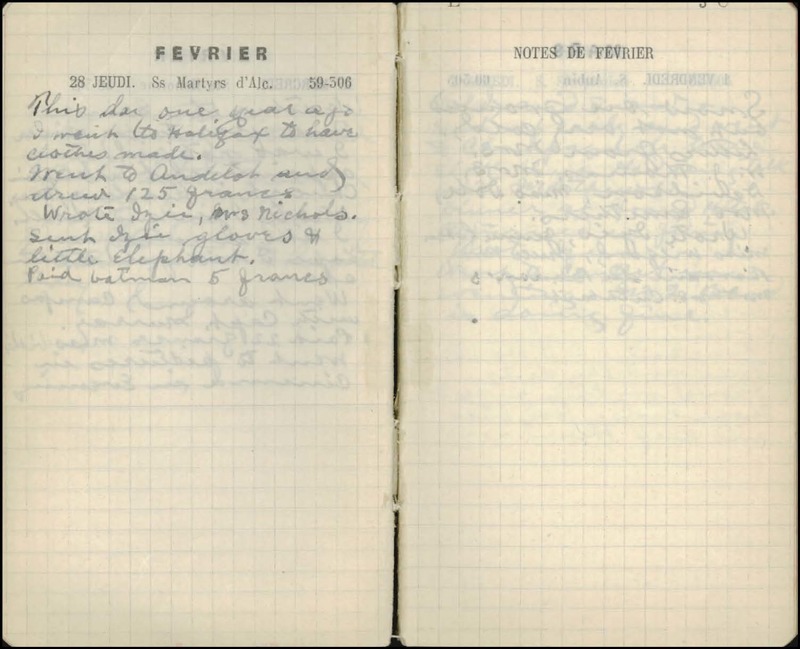 FEVRIER
28 JEUDI. Ss Martyrs d'Alc. 59-306
This day one year ago
I went to Halifax to have
clothes made.
Went to Andelot and
drew 125 francs
Wrote Izie, Mrs Nichols.
Sent Izie gloves &
little elephant.
Paid batman 5 francs
NOTES DE FEVRIER